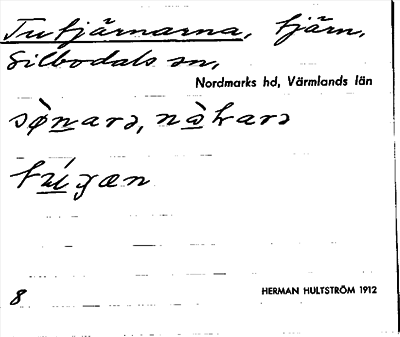 Tutjärnarna, tjärn,
Silbodals sn,
Nordmarks hd, Värmlands län
sø̀narə, nàkarə
8
HERMAN HULTSTRÖM 1912